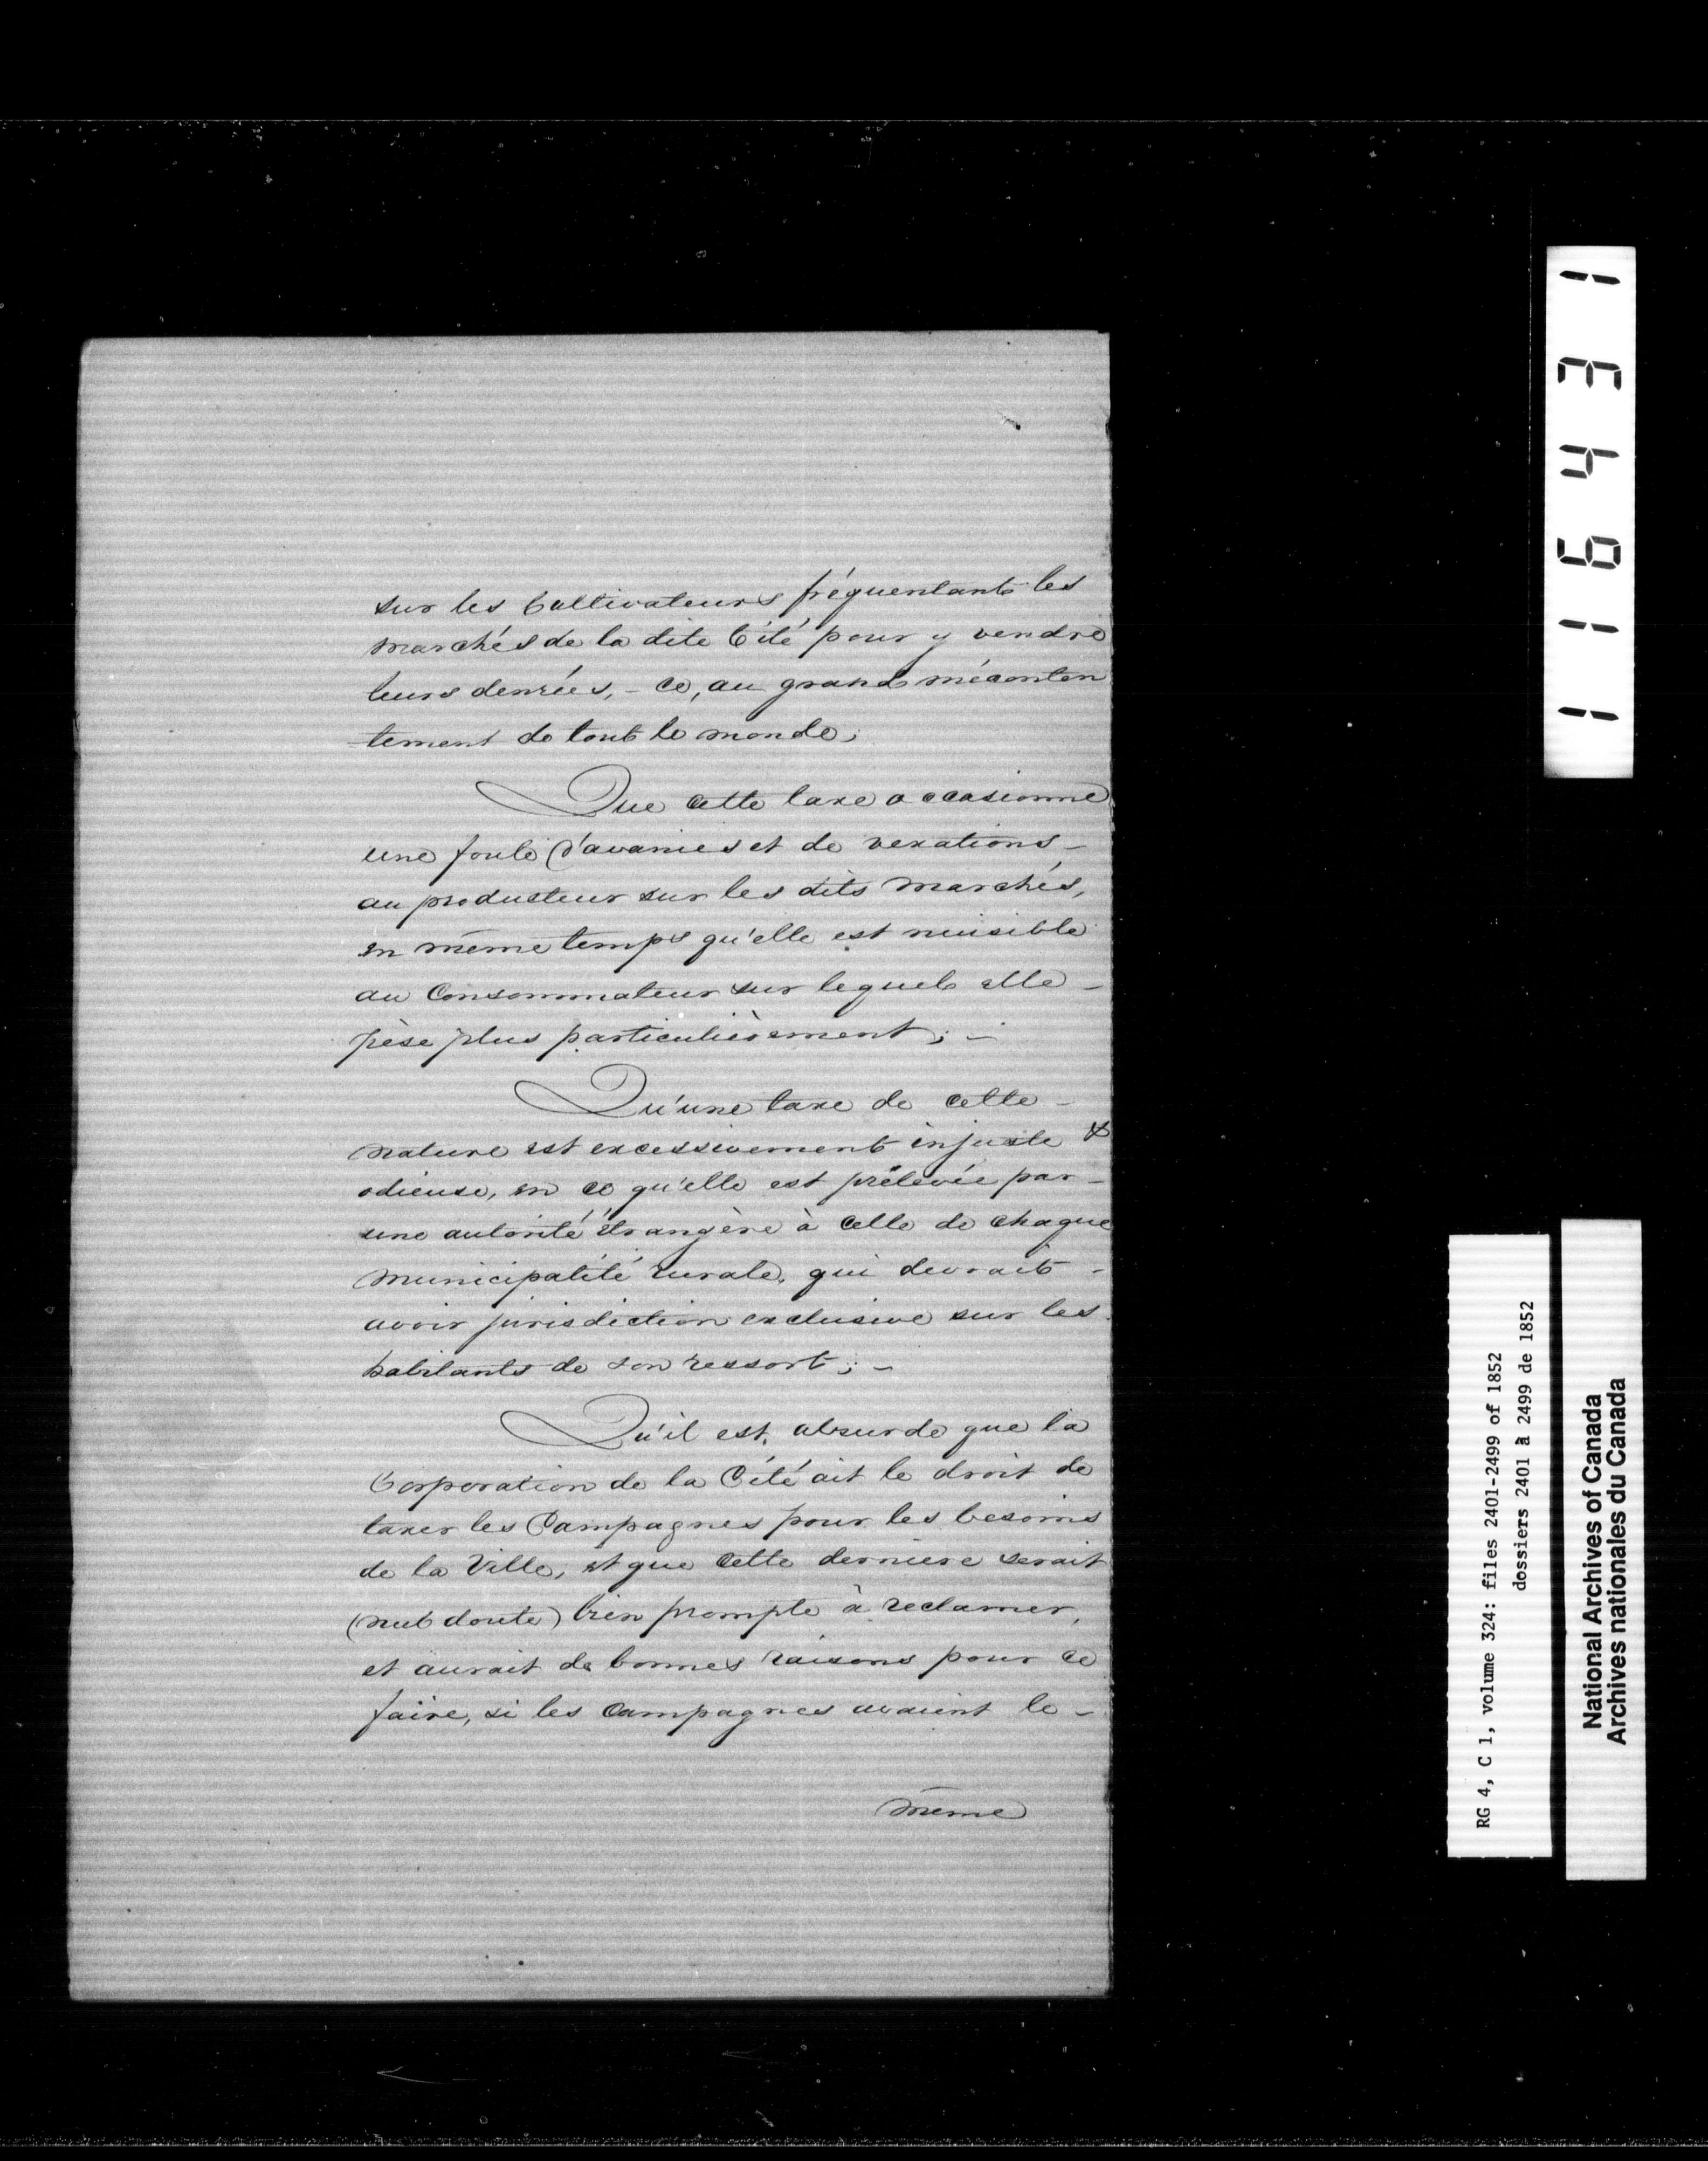 sur les Cultivateurs fréquentant les
marchés de la dite Cité pour y vendre
leurs denrées, - ce, au grand méconten
tement de tout le monde;
Que cette taxe occasionne
une foule d'avanies et de vexations -
au producteur sur les dits marchés,
en même temps qu'elle est nuisible
au Consommateur sur lequel elle -
pèse plus particulièrement; -
Qu'une taxe de cette -
nature est excessivement injuste &
odieuse, en ce qu'elle est prélevée par -
une autorité étrangère à celle de chaque
municipalité rurale, qui devrait -
avoir jurisdiction exclusive sur les
habitants de son ressort; -
Qu'il est absurde que la
Corporation de la Cité ait le droit de
taxer les Campagnes pour les besoins
de la Ville, et que cette derniere serait
(nul doute) bien prompte à reclamer,
et aurait de bonnes raisons pour ce
faire, si les Campagnes avaient le -
même
116431
RG 4, C 1, volume 324: files 2401-2499 of 1852
dossiers 2401 à 2499 de 1852
National Archives of Canada
Archives nationales du Canada